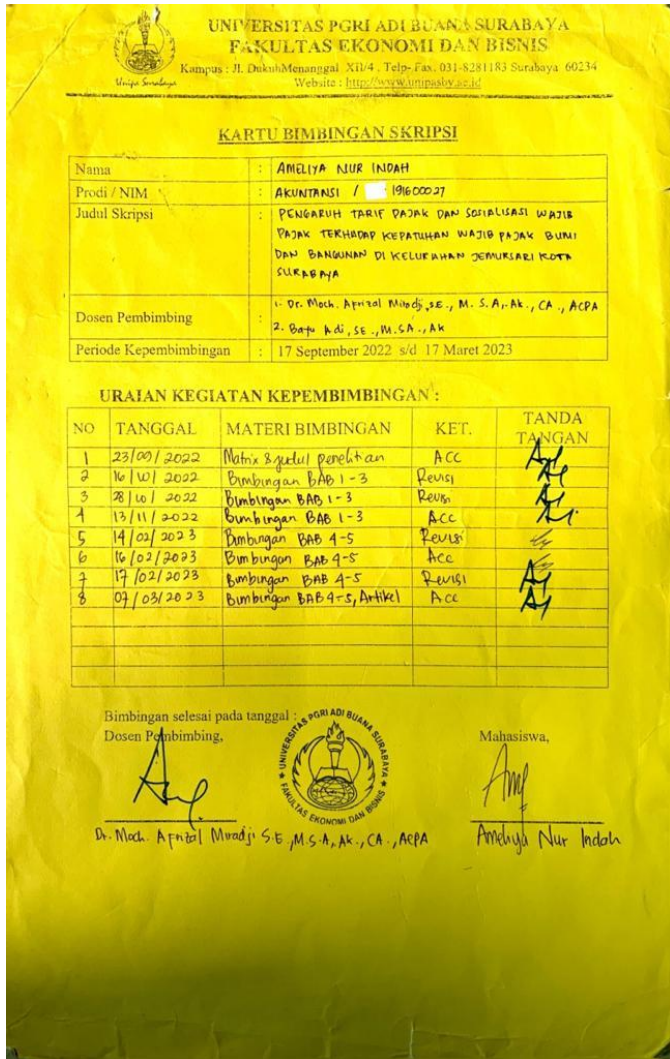 UNIVERSITAS PGRI ADI BUANA SURABAYA
FAKULTAS EKONOMI DAN BISNIS
Kampus : Jl. DukuhMenanggal XII/4 . Telp- Fax. 031-8281183 Surabaya 60234
Website : http://www.unipasby.ac.id
Unipa Surabaya
KARTU BIMBINGAN SKRIPSI
Nama : AMELIYA NUR INDAH
Prodi / NIM : AKUNTANSI / 191600027
Judul Skripsi : PENGARUH TARIF PAJAK DAN SOSIALISASI WAJIB
PAJAK TERHADAP KEPATUHAN WAJIB PAJAK BUMI
DAN BANGUNAN DI KELURAHAN JEMURSARI KOTA
SURABAYA
Dosen Pembimbing : 1. Dr. Moch. Afrizal Miradji, S.E., M. S. A,. Ak., CA ., ACPA
2. Bayu Adi, SE ., M.SA., Ak
Periode Kepembimbingan : 17 September 2022 s/d 17 Maret 2023
URAIAN KEGIATAN KEPEMBIMBINGAN :
NO TANGGAL MATERI BIMBINGAN KET. TANDA
TANGAN
1 23/09/2022 Matrix & judul penelitian ACC
2 16/10/2022 Bimbingan BAB 1-3 Revisi
3 28/10/2022 Bimbingan BAB 1-3 Revisi
4 13/11/2022 Bimbingan BAB 1-3 Acc
5 14/02/2023 Bimbingan BAB 4-5 Revisi
6 16/02/2023 Bimbingan BAB 4-5 Acc
7 17/02/2023 Bimbingan BAB 4-5 Revisi
8 07/03/2023 Bimbingan BAB 4-5, Artikel Acc
Bimbingan selesai pada tanggal :
Dosen Pembimbing, Mahasiswa,
UNIVERSITAS PGRI ADI BUANA SURABAYA
FAKULTAS EKONOMI DAN BISNIS
Dr. Moch. Afrizal Miradji S.E., M.S.A, Ak., CA ., ACPA Ameliya Nur Indah